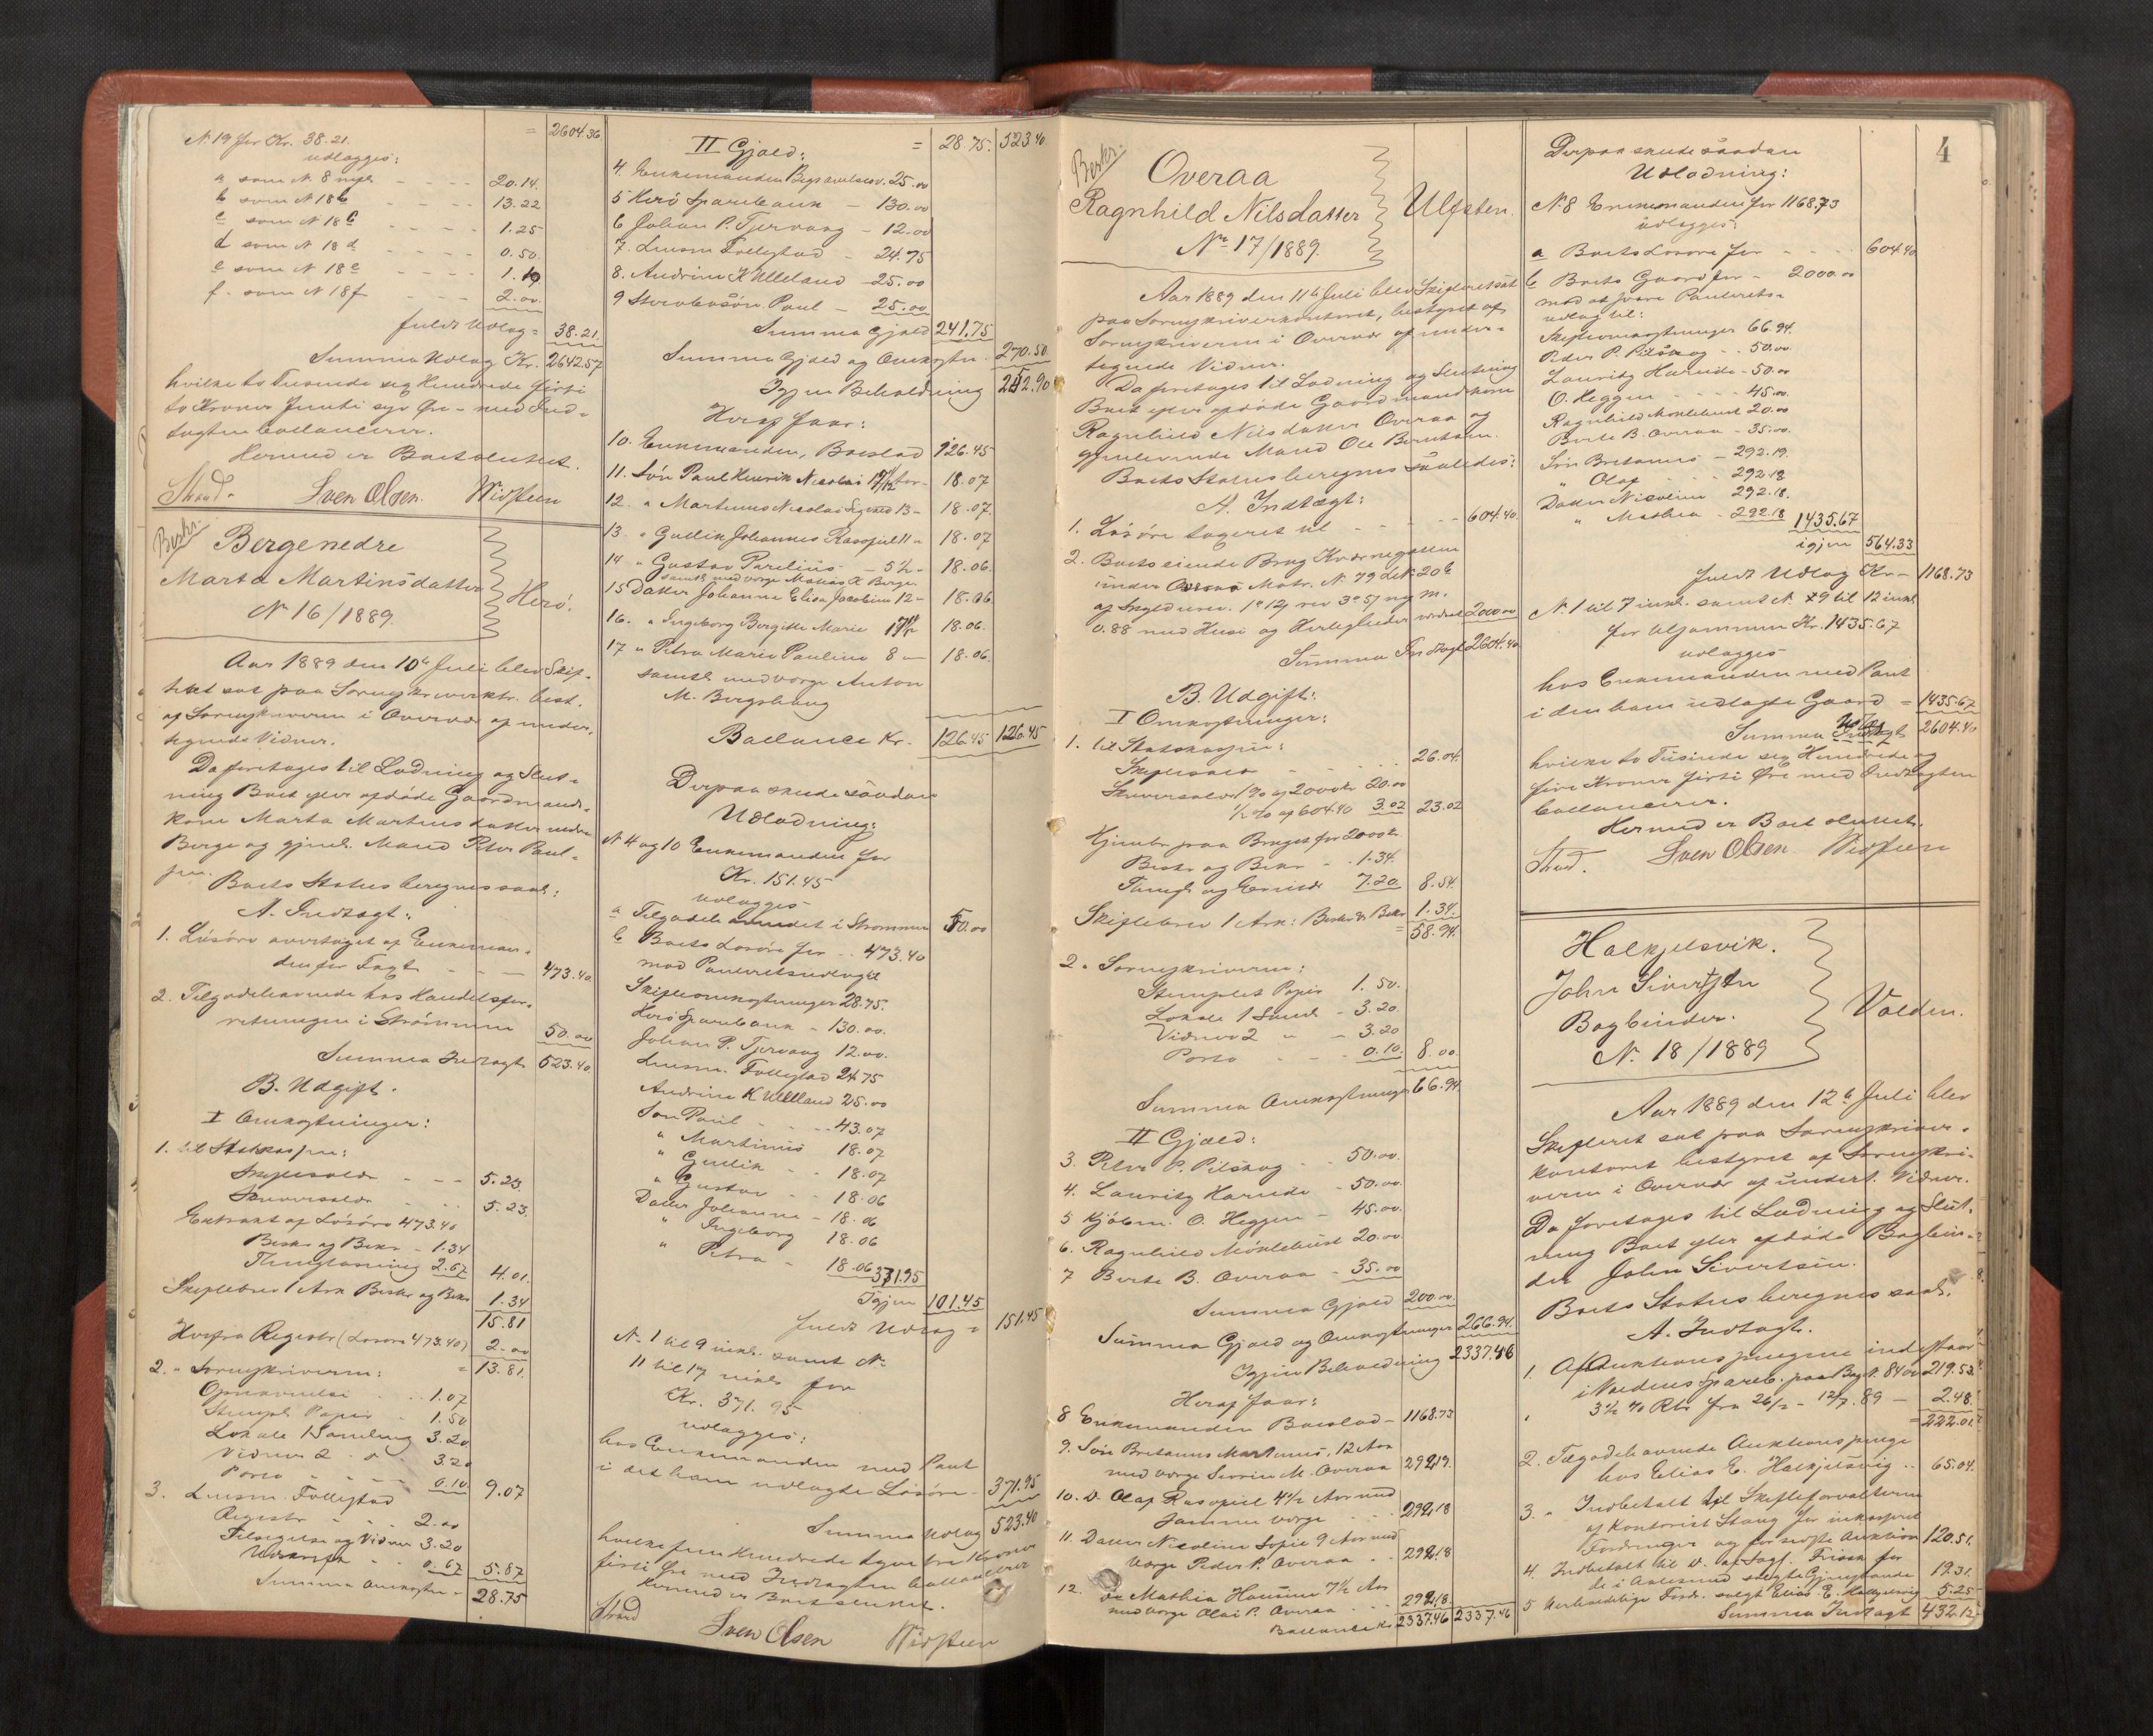 N. 19 for Kr. 38.21. = 2604.36
udlægges:
a som N. 8 - - - - 20.14.
b som N 18 b - - - - 13.22
c som N 18 c - - - - 1.25
d som N 18 d - - - - 0.50.
e som N 18 e - - - - 1.10
f. som N 18 f - - - 2.00.
fuldt Udlæg = 38.21.
Summa Udlæg Kr. 2642.57
hvilke to Tusinde sex Hundrede firti
to Kroner femti syv Øre - med Ind-
tægten ballancerer.
Hermed er Boet sluttet.
Strand. Sven Olsen. Vidsteen
Beskr.
Berge nedre
Marta Martinsdatter
N. 16/1889.
Herö.
Aar 1889 den 10de Juli blev Skif-
teret sat paa Sorenskriverktr. best.
af Sorenskriveren i Overvær af under-
tegnede Vidner.
Da foretages til Lodning og Slut-
ning Boet efter afdøde Gaardmands-
kone Marta Martinsdatter nedre
Berge og gjenl. Mand Peter Paul-
sen.
Boets Status beregnes saal:
A. Indtægt:
1. Løsøre overtaget af Enkeman-
den for Taxt - - - 473.40
2. Tilgodehavende hos Handelsfor-
retningen i Strømmen 50.00
Summa Indtægt 523.40
B. Udgift.
I Omkostninger:
1. til Statskassen:
Skiftesalær - - - 5.23.
Skriversalær - - 5.23.
Extrakt af Løsøre 473.40
Beskr og Bekr - 1.34
Thinglæsning 2.67 4.01.
Skiftebrev 1 Ark Beskr og Bekr 1.34
15.81
Herfra Registr (Løsøre 473.40) 2.00
= 13.81.
2. " Sorenskriveren:
Opskrivelse - - 1.07
Stempl. Papir - 1.50
Lokale 1 Samling 3.20
Vidner 2 - " - 3.20
Porto - - - 0.10 9.07
3. Lensm. Folkestad
Registr - - 2.00
Tilsigelse og Vidner 3.20
Udskrift - - 0.67 5.87
Summa Omkostn - 28.75
II Gjæld: = 28.75. 523.40
4. Enkemanden 25.00
5 Herö Sparebank - 130.00
6 Johan P. Tjervaag - 12.00
7. Lensm Folkestad - 24.75
8. Andrine K Ulleland - 25.00
9 Paul - 25.00
Summa Gjæld 241.75
Summa Gjæld og Omkostn. 270.50
Igjen Beholdning 252.90
Heraf faar:
10. Enkemanden, Boeslod 126.45
11. Søn Paul Henrik Nicolai - 18.07
12. " Martinus Nicolai 13 - 18.07.
13. " Gullik Johannes 11 " 18.07
14 " Gustav Parelius - 5½ - 18.06.
samtl. med Værge Berge
15 Datter Johanna Elisa Jacobine 12 - 18.06
16. " Ingeborg Bergitte Marie 18.06.
17 " Petra Marie Pauline 8 - 18.06.
samtl. med Værge Anton
M. Bergshaug
Ballance Kr. 126.45 126.45
Derpaa skede saadan
Udlodning:
N 4 og 10 Enkemanden for
Kr. 151.45
udlægges-
a Tilgodehavendet i Strømmen 50.00
b Boets Løsøre for - - 473.40
mod Panteretsudlæg til
Skifteomkostninger 28.75.
Herö Sparebank - 130.00.
Johan P. Tjervaag 12.00.
Lensm. Folkestad 24.75
Andrine K Ulleland 25.00
Søn Paul - - - 43.07
" Martinus 18.07
" Gullik - - 18.07
" Gustav - - 18.06
Datter Johanna - 18.06
" Ingeborg 18.06
" Petra - 18.06 371.95
Igjen 101.45
fuldt Udlæg = 151.45
N. 1 til 9 inkl. samt N.
11 til 17 inkl. for
Kr. 371.95
udlægges:
hos Enkemanden med Pant
i det ham udlagte Løsøre - 371.95
Summa Udlæg 523.40
hvilke fem Hundrede tyve tre Kroner
firti Øre med Indtægten ballancerer
Hermed er Boet sluttet.
Strand Sven Olsen Vidsteen
Beskr.
Overaa
Ragnhild Nilsdatter
No 17/1889.
Ulfsten.
Aar 1889 den 11te Juli blev Skifteret sat
paa Sorenskriverkontoret, bestyret af
Sorenskriveren i Overvær af under-
tegnede Vidner.
Da foretages til Lodning og Slutning
Boet efter afdøde Gaardmandskone
Ragnhild Nilsdatter Overaa og
gjenlevende Mand Ole Berntsen.
Boets Status beregnes saaledes:
A. Indtægt:
1. Løsøre taxeret til - - - - 604.40.
2. Boets eiende Brug
under Overaa Matr. N. 79 LN. 20b
af Skyld urev. 1 " 12 rev 3 " 57 ny M.
0.88 med Huse og Herligheder værdsat 2000.00
Summa Indtægt 2604.40
B. Udgift:
I Omkostninger:
1. til Statskassen:
Skiftesalær - - - - 26.04.
Skriversalær 1% af 2000 Kr. 20.00
½ % af 604.40 3.02 23.02
Hjemler paa Bruget for 2000 Kr.
Beskr og Bekr - - 1.34.
Thingl og 7.20 8.54.
Skiftebrev 1 Ark: Beskr & Bekr 1.34.
= 58.94.
2. Sorenskriveren:
Stemplet Papir 1.50.
Lokale 1 Saml - 3.20.
Vidner 2 - - 3.20
Porto - - - 0.10. 8.00.
Summa Omkostninger 66.94.
II Gjæld:
3. Peter P. Pilskog - - 50.00.
4. Lauritz Hareide - 50.00.
5 Kjøbm. O. Heggen - 45.00.
6. Ragnhild Møklebust 20.00
7 Berte B. Overaa - 35.00
Summa Gjæld 200.00.
Summa Gjæld og Omkostninger 266.94.
Igjen Beholdning 2337.46
Heraf faar:
8 Enkemanden Boeslod - 1168.73
9. Søn Bretanus Martinus, 12 Aar
med Værge M. Overaa 292.19.
10. D. Olaf 4½ Aar med
samme Værge - - - 292.18
11. Datter Nicoline Sofie 9 Aar med
Værge Peder P. Overaa - - 292.18
12. Do Mathea 7½ Aar
med Værge Olai P. Overaa - - 292.18.
Ballance Kr. 2337.46 2337.46
4
Derpaa skede saadan
Udlodning:
N. 8 Enkemanden for 1168.73
udlægges:
a Boets Løsøre for - - - 604.40
b Boets Gaard for - 2000.00
mod at svare Panterets-
udlæg til:
Skifteomkostninger 66.94.
Peder P. Pilskog - - 50.00.
Lauritz Hareide - 50.00
O. Heggen - - - 45.00.
Ragnhild Møklebust 20.00
Berte B. Overaa - 35.00.
Søn Bretanus - 292.19.
" Olaf - - 292.18
Datter Nicoline 292.18.
" Mathea - 292.18 1435.67
igjen 564.33
fuldt Udlæg Kr - 1168.73
N. 1 til 7 inkl. samt N. 9 til 12 inkl
for tilsammen Kr. 1435.67
udlægges
hos Enkemanden med Pant
i den ham udlagte Gaard = 1435.67
Summa Udlæg 2604.40
hvilke to Tusinde sex Hundrede og
fire Kroner firti Øre med Indtægten
ballancerer.
Hermed er Boet sluttet.
Strand. Sven Olsen Vidsteen
Halkjelsvik.
John Sivertsen
Bogbinder.
N. 18/1889
Volden.
Aar 1889 den 12te Juli blev
Skifteret sat paa Sorenskriver-
kontoret bestyret af Sorenskri-
veren i Overvær af undert. Vidner.
Da foretages til Lodning og Slut-
ning Boet efter afdøde Bogbin-
der John Sivertsen.
Boets Status beregnes saal.
A. Indtægt.
1. Af Auktionspengene indestaar
i Voldens Spareb. paa Bog N. 840 219.53.
" 3½ % Rtr fra 26/2 - 12/7.89 - 2.48.
= 222.01.
2. Tilgodehavende Auktionspenge
hos Elias E. Halkjelsvig - - 65.04.
3. " Indbetalt til Skifteforvalteren
af Kontorist Stang for inkasserede
Fordringer og for Auktion 120.51.
4. Indbetalt til D. af Sagf. Frisak for
de i Aalesund solgte Gjenstande 19.31.
5 Uerholdelige Fordr. solgt Elias E. Halkjelsvig 5.25
Summa Indtægt 432.12